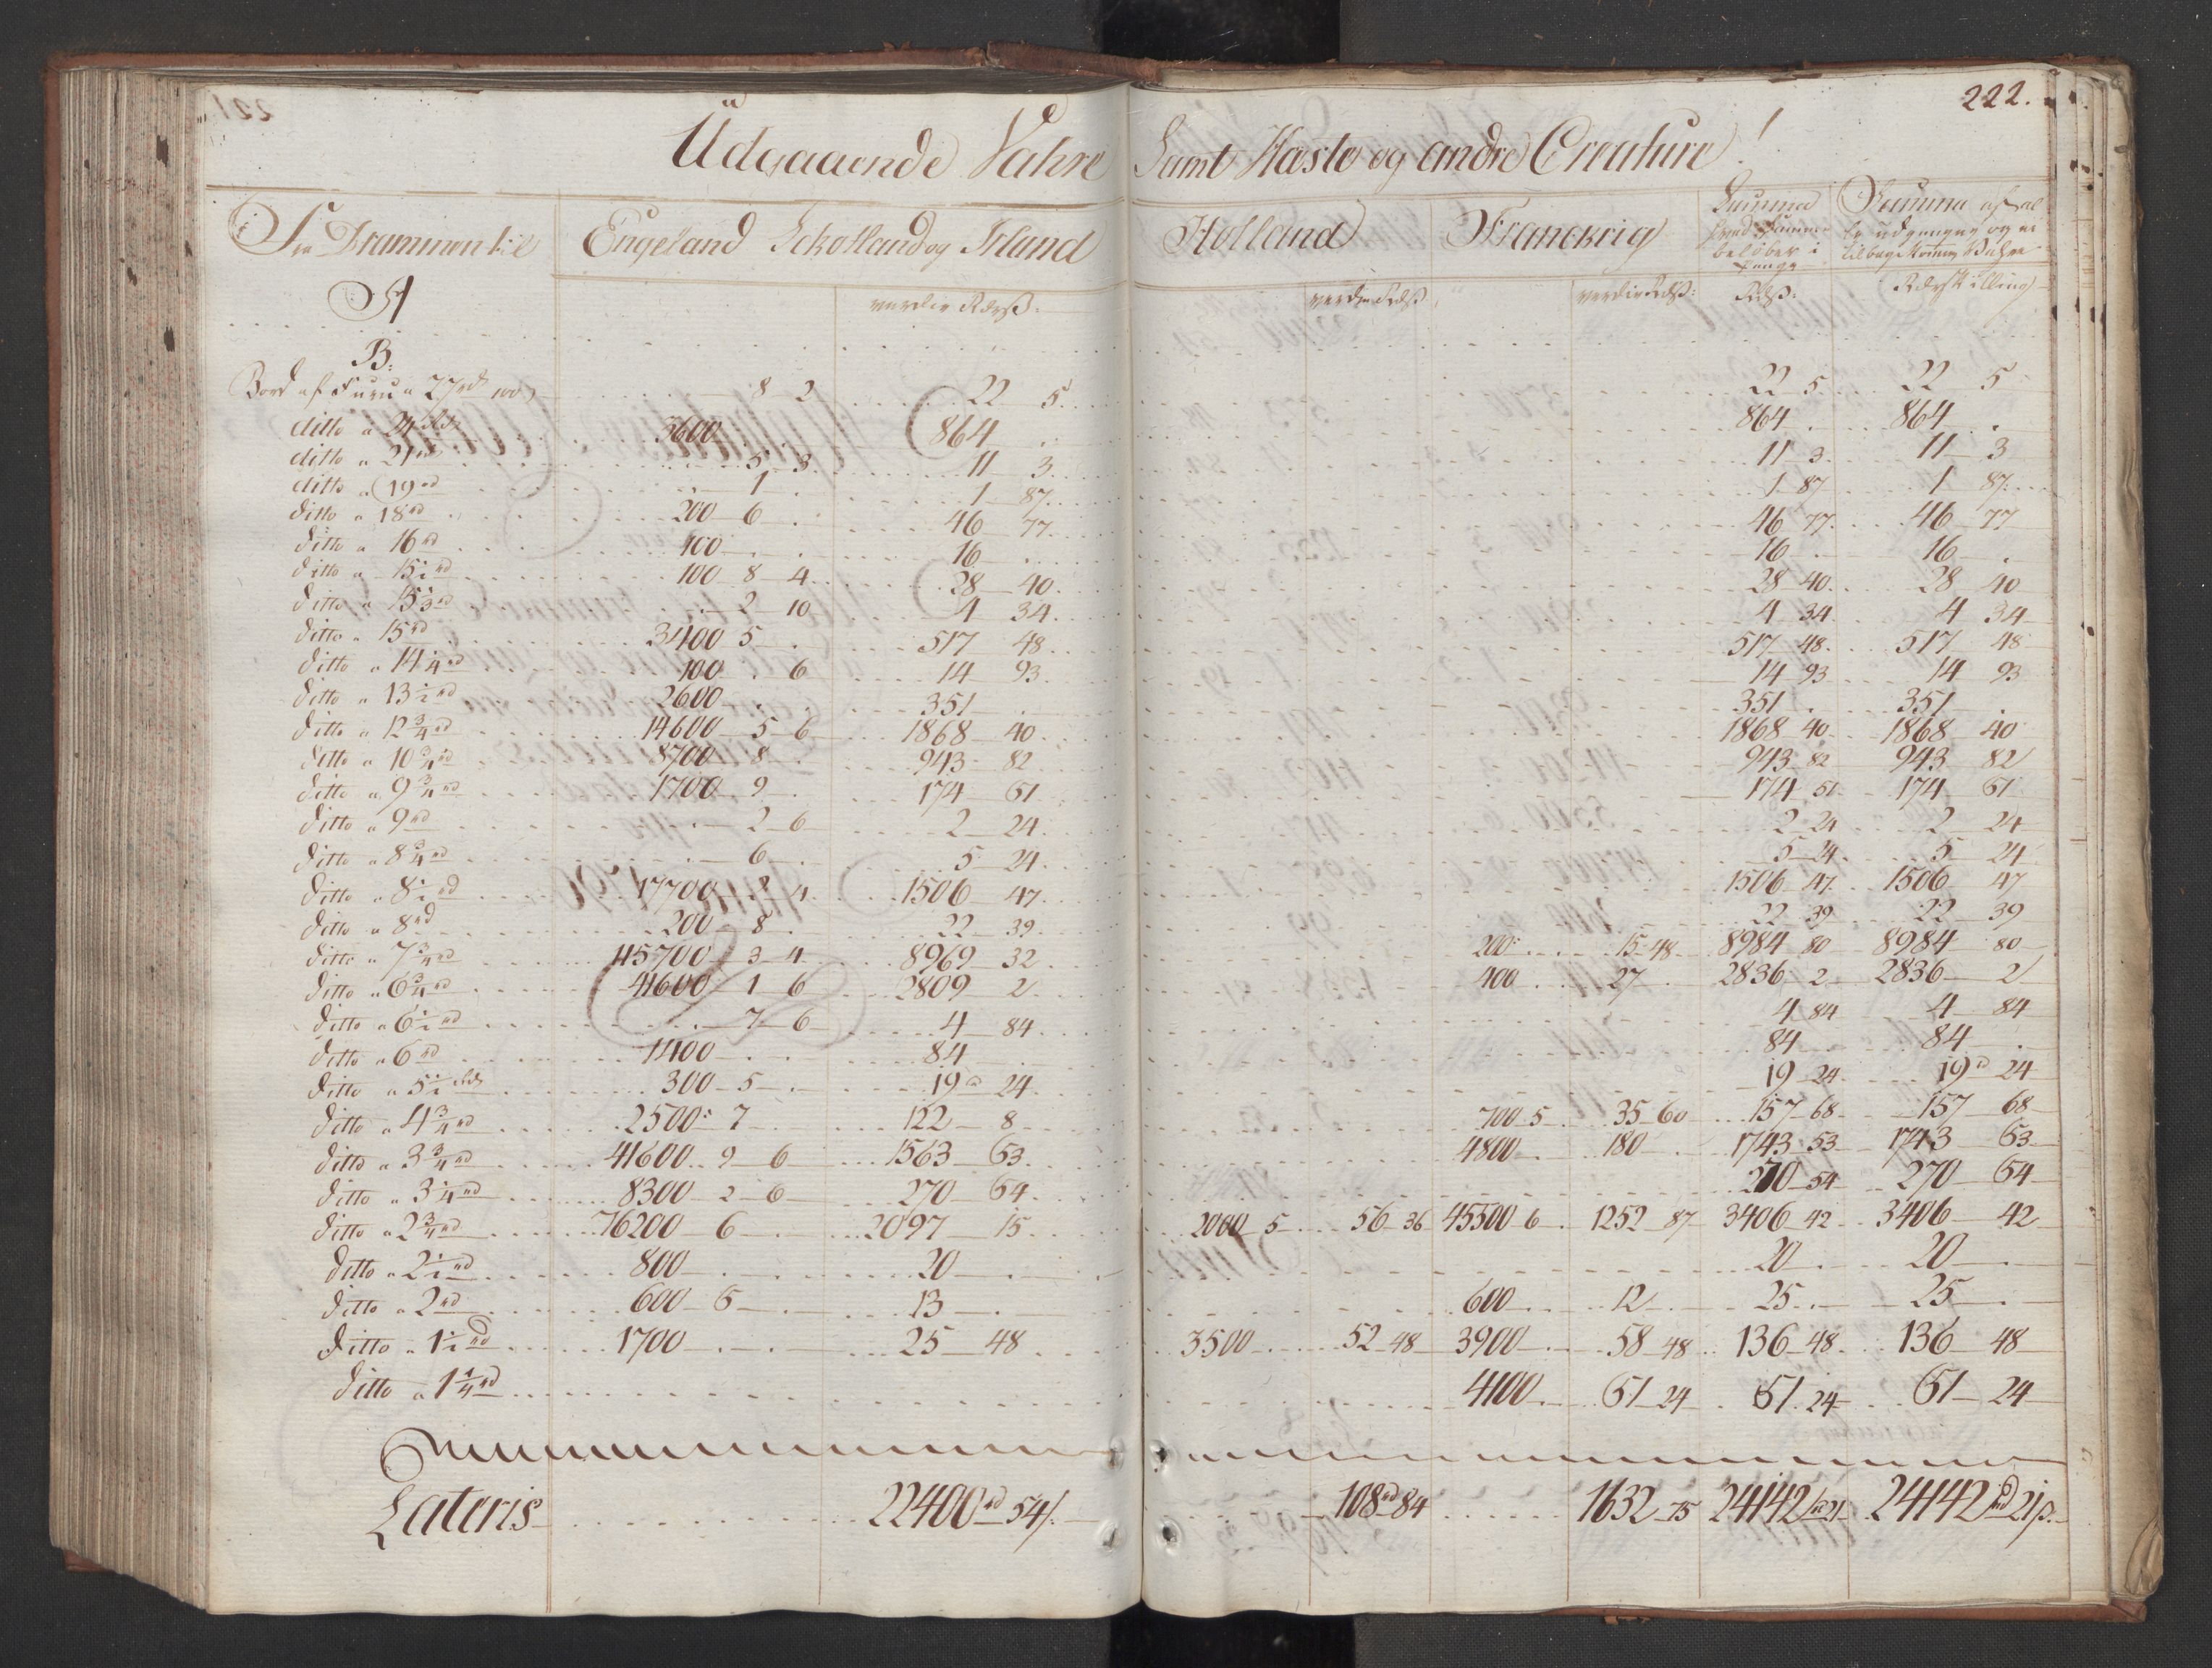 222.
Udgaaende Vahre Samt Hæste og andre Creature!
Fra Drammen til Engeland Schotland og Irland Holland Franckrig Summa hvad Summen beløber i Penge Summa af alle udgangne og ei tilbagekomne Vahre
A værdie Rdrß: værdie Rdß værdie Rdß: Rdß: Rdr Skilling
B:
Bord af Furu a 27 rdr 100 8 2 22 5 22 5 22 5
ditto a 24 rdr 3600 864 . 864 . 864 .
ditto a 21 rd 5 3 11 3 11 3 11 3
ditto a 19 rd 1 . 1 87 1 87 1 87
ditto a 18 rd 200 6 . 46 77 46 77 46 77
ditto a 16 rd 100 . . 16 . 16 . 16 .
ditto a 15 1/2 rd 100 8 4 28 40 28 40 28 40
ditto a 15 1/3 rd 2 10 4 34 4 34 4 34
ditto a 15 rd 3400 5 . 517 48 517 48 517 48
ditto a 14 1/4 rd 100 . 6 14 93 14 93 14 93
ditto a 13 1/2 rd 2600 . . 351 . 351 . 351 .
ditto a 12 3/4 rd 14600 5 6 1868 40 1868 40 1868 40
ditto a 10 3/4 rd 8700 8 . 943 82 943 82 943 82
ditto a 9 3/4 rd 1700 9 . 174 51 174 51 174 51
ditto a 9 rd 2 6 2 24 2 24 2 24
ditto a 8 3/4 rd 6 . 5 24 5 24 5 24
ditto a 8 1/2 rd 17700 2 4 1506 47 1506 47 1506 47
ditto a 8 rd 200 8 . 22 39 22 39 22 39
ditto a 7 3/4 rd 115700 3 4 8969 32 200 15 48 8984 80 8984 80
ditto a 6 3/4 rd 41600 1 6 2809 2 400 27 . 2836 2 2836 2
ditto a 6 1/2 rd 7 6 4 84 4 84 4 84
ditto a 6 rd 1400 . . 84 . 84 . 84 .
ditto a 5 1/2 rdr 300 5 . 19 24 19 24 19 24
ditto a 4 3/4 rd 2500 7 122 8 700 5 35 60 157 68 157 68
ditto a 3 3/4 rd 41600 9 6 1563 53 4800 180 . 1743 53 1743 53
ditto a 3 1/4 rd 8300 2 6 270 54 270 54 270 54
ditto a 2 3/4 rd 76200 6 . 2097 15 2000 5 56 36 45500 6 1252 87 3406 42 3406 42
ditto a 2 1/2 rd 800 . . 20 . 20 . 20 .
ditto a 2 rd 600 5 . 13 . 600 12 . 25 . 25 .
ditto a 1 1/2 rd 1700 . . 25 48 3500 52 48 3900 58 48 136 48 136 48
ditto a 1 1/4 rd 4100 51 24 51 24 51 24
Lateris 22400 rd 54 ß. 108 rd 84 1632 75 24142 rd 21 24142 rd 21 ß.